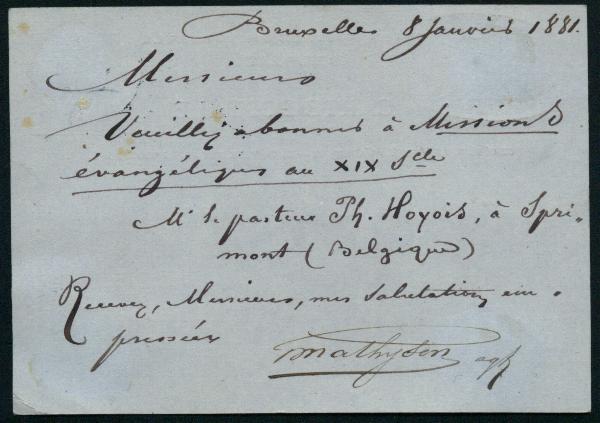 Bruxelles 8 Janvier 1881.
Messieurs
Veuillez abonner à Missions
évangéliques au XIX Scle
Mr le pasteur Ph. Hoyois, à Spri-
mont (Belgique)
Recevez, Messieurs, mes salutations em-
pressées